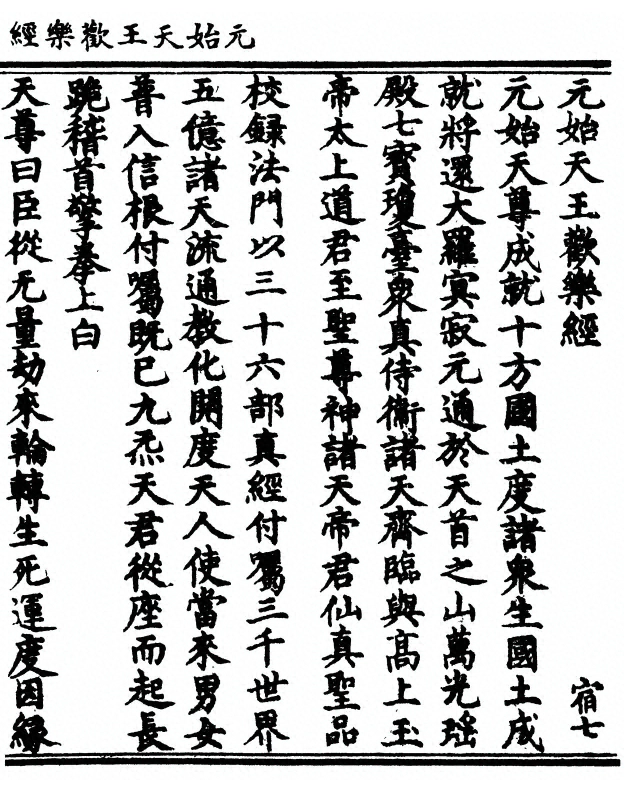 元始天王歡樂經
元始天王歡樂經
宿七
元始天尊成就十方國土度諸衆生國土成
就將還大羅寞寂元通於天首之山萬光瑶
殿七寳瓊臺衆真侍衞諸天齊臨與髙上玉
帝太上道君至聖尊神諸天帝君仙真聖品
校録法門以三十六部真經付囑三千世界
五億諸天流通教化開度天人使當來男女
普入信根付囑既已九炁天君從座而起長
跪稽首擎拳上白
天尊曰臣從无量劫來輪轉生死運度因縁